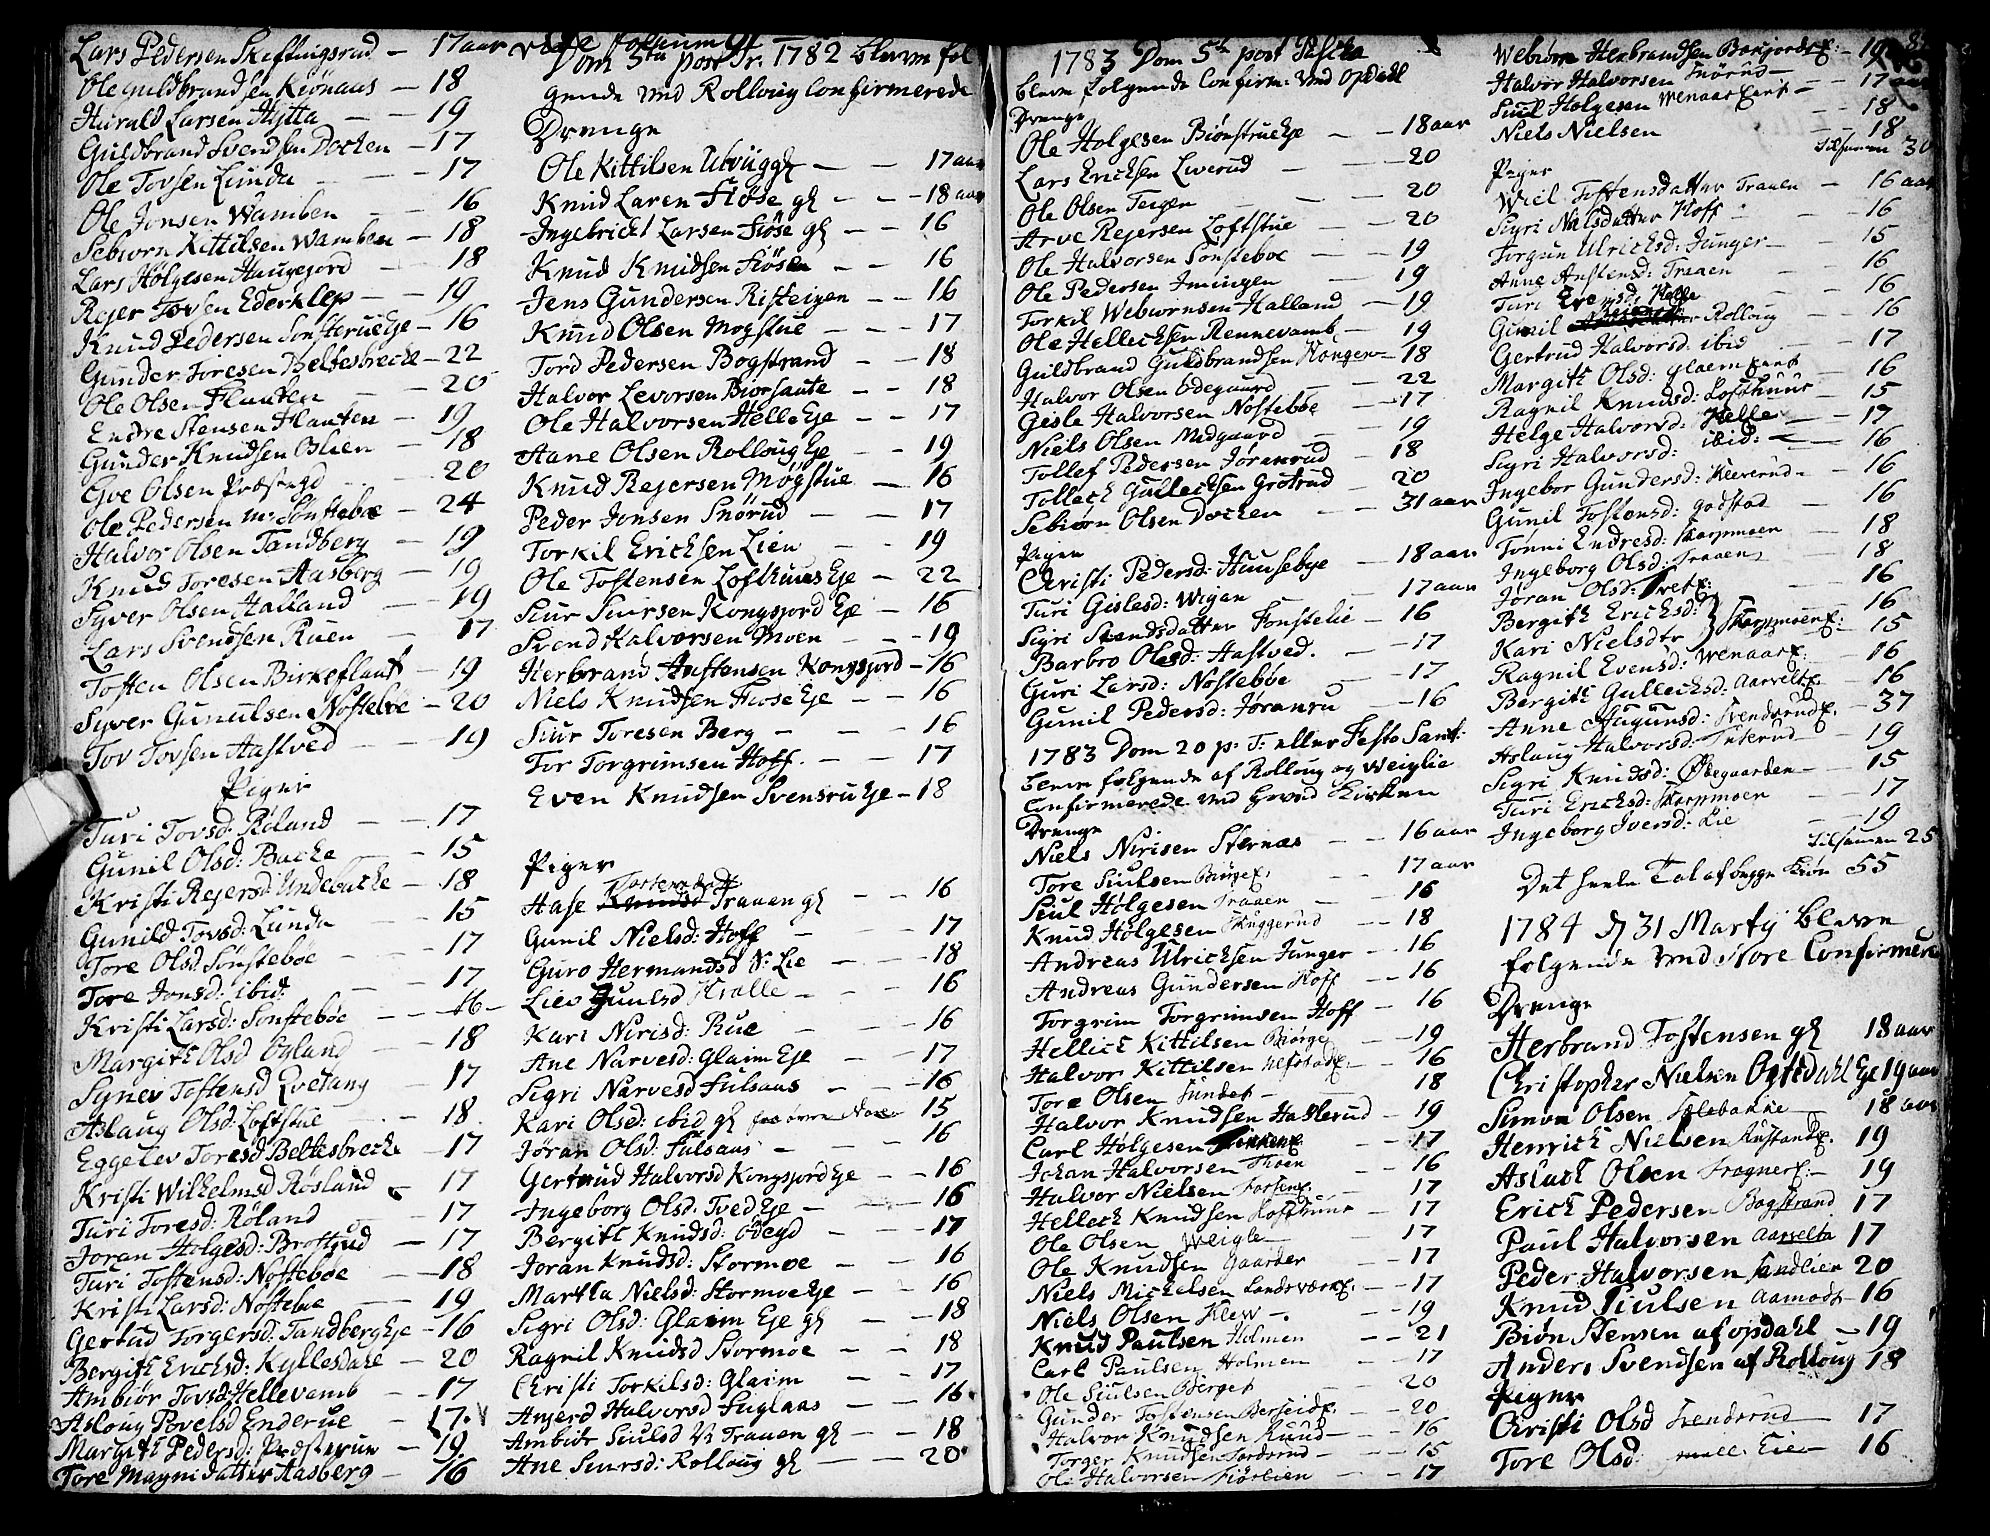 Lars Pedersen Skeftingsrud – 17 aar
Ole Guldbrandsen Kiönaas – 18
Harald Larsen Hytta – – 19
Guldbrand Svendsen Docken – 17
Ole Tovsen Lunda – – 17
Ole Jonsen Wamben – – 16
Sebiorn Kittilsen Wamben – 18
Lars Holgesen Haugejord – 18
Rejer Tovsen Ederklep – – 19
Knud Pedersen Sönsterue Eje – 16
Gunder Toresen Beltesbrecke – 22
Ole Olsen Flauten – 20
Endre Stensen Flauten – 19
Gunder Knudsen Oslien – 18
Gve Olsen Præstegd – 20
Ole Pedersen Sönstebøe – 24
Halvor Olsen Tandberg – 19
Knud Toresen Aasberg – 19
Syver Olsen Halland – 19
Lars Svendsen Ruen – 17
Tosten Olsen Birkeflaat – 19
Syver Gunulsen Nöstebøe – 20
Tov Tovsen Aastved – – 19
Piger
Turi Tovsd: Røland – – 17
Gunil Olsd: Backe – 15
Kristi Rejersd: Undebacke – 18
Gunild Tovsd: Lunda 15
Tore Olsd Sönstebøe – 17
Tore Jonsd: ibid: – 17
Kristi Larsd: Sönstebøe – – 16
Margith Olsd Ögland – 18
Synev Tostensd Qvetang – 17
Aslaug Olsd: Loftstue – 18
Eggelev Toresd Beltesbrecke – 17
Kristi Wilhelmsd Røsland – 17
Turi Toresd: Röland – 17
Joran Holgesd: Brostrud – 17
Turi Tostensd: Nöstebøe – 18
Kristi Larsd: Nöstebøe – 19
Gertud Torgersd: Tandberg Eje – 16
Bergith Ericksd: Kyllesdale – 20
Ambiör Tovsd: Hellevamb – 17
Aslaug Povelsd Enderue – 17
Margith Pedersd: Præsterun – 19
Tore Magni datter Aasberg – 16
Vide folium 91
Dom 5ta post Tr. 1782 bleve föl
gende ved Rolloug Confirmerede
Drenge
Ole Kittilsen Utvigg – – 17 aar
Knud Larsen Flöse g – – 18 aar
Ingebricht Larsen Flöse g – – 16
Knud Knudsen Flösen – – 16
Jens Gundersen Risteigen – – 16
Knud Olsen Mogstue – – 17
Tord Pedersen Bogstrand – 18
Halvor Levorsen Biorsaute – 18
Ole Halvorsen Helle Eje – 17
Aane Olsen Rolloug Eje – 19
Knud Rejersen Mögstue – 16
Peder Jonsen Snörud – – 17
Torkil Ericksen Lien – 19
Ole Tostensen Lofthuus Eje – 22
Siur Siursen Kongsjord Eje – 16
Svend Halvorsen Moen – – 19
Herbrand Anstensen Kongsjord – 16
Niels Knudsen Flose Eje – 16
Siur Toresen Berg – – – 16
Tor Torgrimsen Hoff. – – 17
Even Knudsen Svensru Eje – 18
Piger
Aase Tostensdatt Traaen g – – 16
Gunil Nielsd: Hoff – 17
Guro Hermandsd N: Lie – 18
Liev Gunlsd Kralle – 16
Kari Nirisd: Rue – – 16
Ane Narvesd: Glaim Eje – 17
Sigri Narvesd Fulsaas – – 16
Kari Olsd: ibid g 15
Jöran Olsd: Fulsaas – – 16
Gertrud Halvorsd Kongsjord Eje – 16
Ingeborg Olsd. Tved Eje – – 16
Bergith Knudsd: Ödegd – 17
Joran Knudsd: Stormoe – 16
Martha Nielsd: Stormoe Eje – 16
Sigri Olsd: Glaim Eje g – 18
Ragnil Knudsd Stormoe – 18
Christi Torkilsd: Glaim – 17
Anjerd Halvorsd Fuglaas – 16
Ambiör Siulsd Traaen g – 18
Ane Siursd: Rolloug g – – 20
1783 Dom 5te post Pascha
bleve folgende Confirm: ved Opdahl
Drenge
Ole Holgesen Biönstrue Eje – – 18 aar
Lars Ericksen Liverud – – 20
Ole Olsen Teigen – – – 20
Arve Rejersen Loftstue – – 20
Ole Halvorsen Sönsteboe – – 19
Ole Pedersen Imingen – 19
Torkil Webiörnsen Halland – 19
Ole Hellecksen Rennevamb – 19
Guldbrand Guldbrandsen Kongen – 18
Halvor Olsen Ödegaard – – 22
Gisle Halvorsen Nöstebøe – 17
Niels Olsen Medgaard – 19
Tollef Pedersen Jöranrud – 18
Tolleck Gulleckson Grotrud – 20
Sebiörn Olsen Docken – – 31 aar
Piger
Christi Pedersd: Haasebye – 18 aar
Turi Gislesd: Wegan – 17 aar
Sigri Svendsdatter Tonstelie – 16
Barbro Olesd: Aastved. – 17
Guri Larsd: Nöstebøe – 17
Gunil Pedersd: Joranru – 16
1783 Dom 20 p: T: eller Festo Sant:
bleve folgende af Rolloug og Weiglie
Confirmerede ved Grønd Kirken
Drenge
Niels Nirisen Sternæs – – 16 aar
Tore Siulsen Biörge. – 17 aar
Siul Holgesen Traaen – 16
Knud Holgesen Skuggerud – 18
Andreas Ulricksen Junger – 16
Andreas Gundersen Hoff – 16
Torgrim Torgrimsen Hoff – 16
Hellick Kittilsen Biörge – 19
Halvor Kittilsen – 16
Tore Olsen Sundet – 18
Halvor Knudsen Haslerud – 19
Carl Holgesen – 17
Johan Halvorsen Thoen – 16
Halvor Nielsen – 17
Helleck Knudsen Lofthuus – 17
Ole Olsen Weigle – 17
Ole Knudsen Gaarder – 17
Niels Mickelsen Landsværk – 17
Niels Olsen Klew – 19
Knud Paulsen Holmen – – 21
Carl Paulsen Holmen – 17
Ole Siulsen Berget – 20
Gunder Tostensen – 20
Halvor Knudsen Ruud – 16
Torger Knudsen – 15
Ole Halvorsen – 17
Webiörn Herbrandsen – 19
Halvor Halvorsen Snörud – 17 aar
Siul Holgesen – 18
Niels Nielsen – 18
Tilsamen 30
Piger
Wiel Tostensdatter Traaen – 16 aar
Sigri Nielsdatter Hoff – 16
Torgun Ulricksd: Junger – 15
Anne Anstensd: Traaen – 16
Turi Evensd: Helle – 16
Gunil Rolloug – 16
Gertrud Halvorsd. ibid – 17
Margith Olsd: Glaem – 16
Ragnil Knudsd: Lofthuus – 15
Helge Halvorsd: Helle – 17
Sigri Halvorsd: ibid: – 16
Ingebor Gundersd: – 16
Gunil Tostensd: Godstad – 16
Tonni Endresd: Skarpmoen – 18
Ingeborg Olsd: Traaen – 18
Jøran Olsd: – 16
Bergith Ericksd: 16
Kari Nielsdtr Skarpmoen – 15
Ragnil Evensd: – 16
Bergith Gullecksd: – 16
Anne Aagunsd: – 37
Aslaug Halvorsd: – 19
Sigri Knudsd: Ødegaarden – 15
Turi Ericksd: Skarpmoen – 17
Ingeborg Iversd: Lie – 19
Tilsamen 25
Det heele Tal af begge Kiön 55
1784 d 31 Martij bleve
følgende ved Nore Confirmer
Drenge
Herbrand Tostensen g 18 aar
Christopher Nielsen Ogtsdahl Eje 19 aar
Simon Olsen – 18 aar
Henrick Nielsen 19
Aslack Olsen – 19
Erick Pedersen Bogstrand 17
Paul Halvorsen Aasvelta 17
Peder Halvorsen Sandlien 20
Knud Siulsen Aamodt – 16
Biön Stensen af Opdahl – 19
Anders Svendsen af Rolloug 18
Piger
Christi Olsd – 17
Tore Olsd: 16